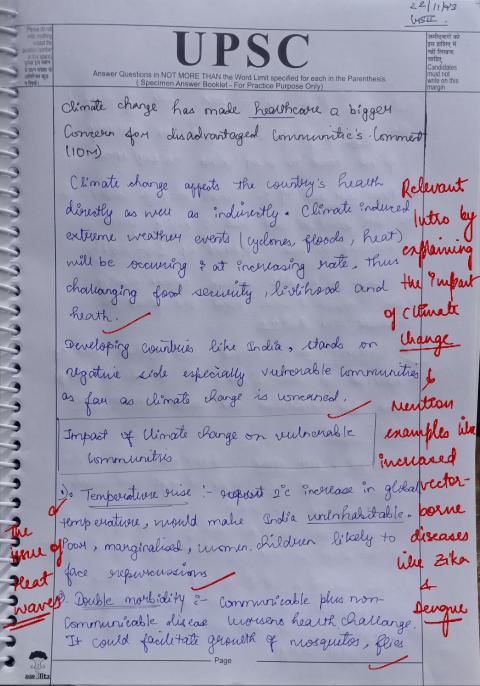 22/11/43
Please do not write anything except the question number in this space
UPSC
उम्मीदवारों को इस हाशिए में नहीं लिखना चाहिए
Candidates must not write on this margin
Answer Questions in NOT MORE THAN the Word Limit specified for each in the Parenthesis
( Specimen Answer Booklet - For Practice Purpose Only)
Climate change has made healthcare a bigger
Concern for disadvantaged Communities. Comment
(10M)
Climate change affects the country's health
directly as well as indirectly. Climate induced
extreme weather events (cyclones, floods, heat)
will be occuring & at increasing rate, thus
challanging food security, livlihood and
heath.
Developing Countries like India, stands on
negative side especially vulnerable communities
as far as climate change is concerned.
Relevant
Intro by
explaining
the impact
of Climate
change
Mention
examples like
increased
vector-
borne
diseases
like Zika
&
Dengue
Impact of Climate change on vulnerable
Communitis
1). Temperature rise :- 2°c increase in global
temperature, would make India uninhabitable.
Poor, marginalised, women. children likely to
face repurcussions
The
issue of
Heat
waves
2). Double morbidity :- Communicable plus non-
Communicable disease worsens health challange.
It could facilitate growth of mosquitos, flies
Page